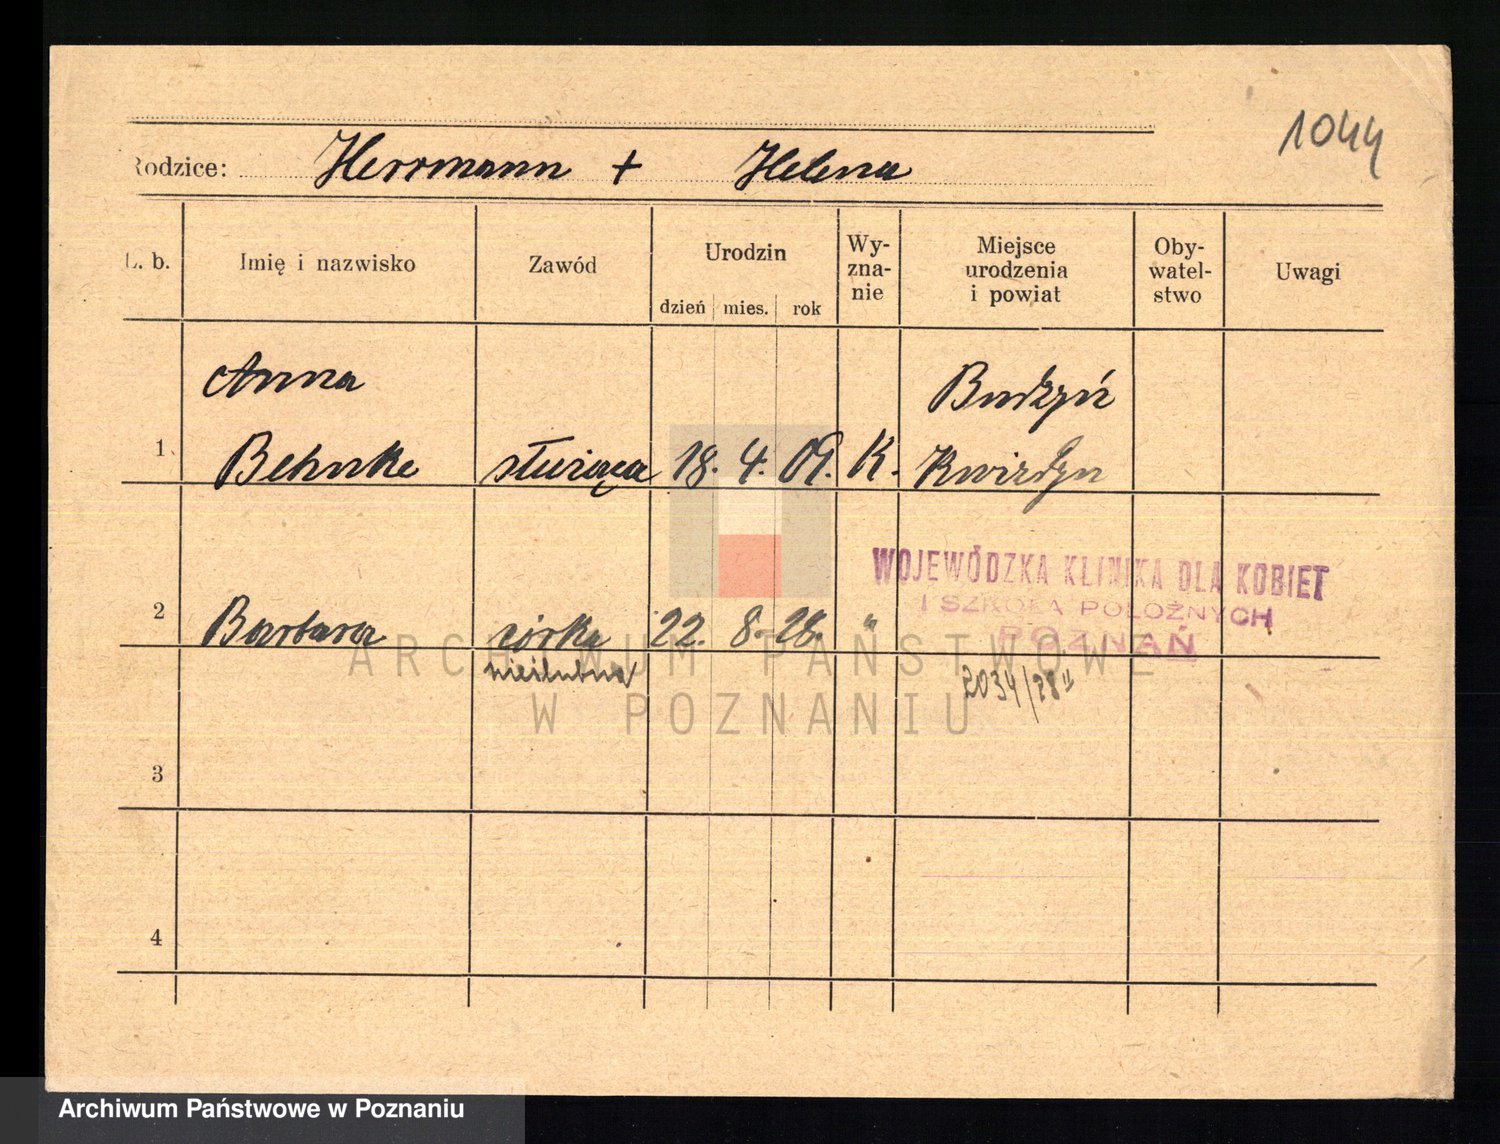 1044
Rodzice: Herrmann + Helena
L. b. Imię i nazwisko Zawód Urodzin dzień mies. rok Wy-zna-nie Miejsce urodzenia i powiat Oby-watel-stwo Uwagi
Anna Budzyń
1 Behnke służąca 18. 4. 09. K. Kwidzyn
WOJEWÓDZKA KLINIKA DLA KOBIET
I SZKOŁA POŁOŻNYCH
POZNAŃ
2 Barbara córka 22. 8. 28. "
nieślubna 2034/28 II
ARCHIWUM PAŃSTWOWE
W POZNANIU
3
4
Archiwum Państwowe w Poznaniu